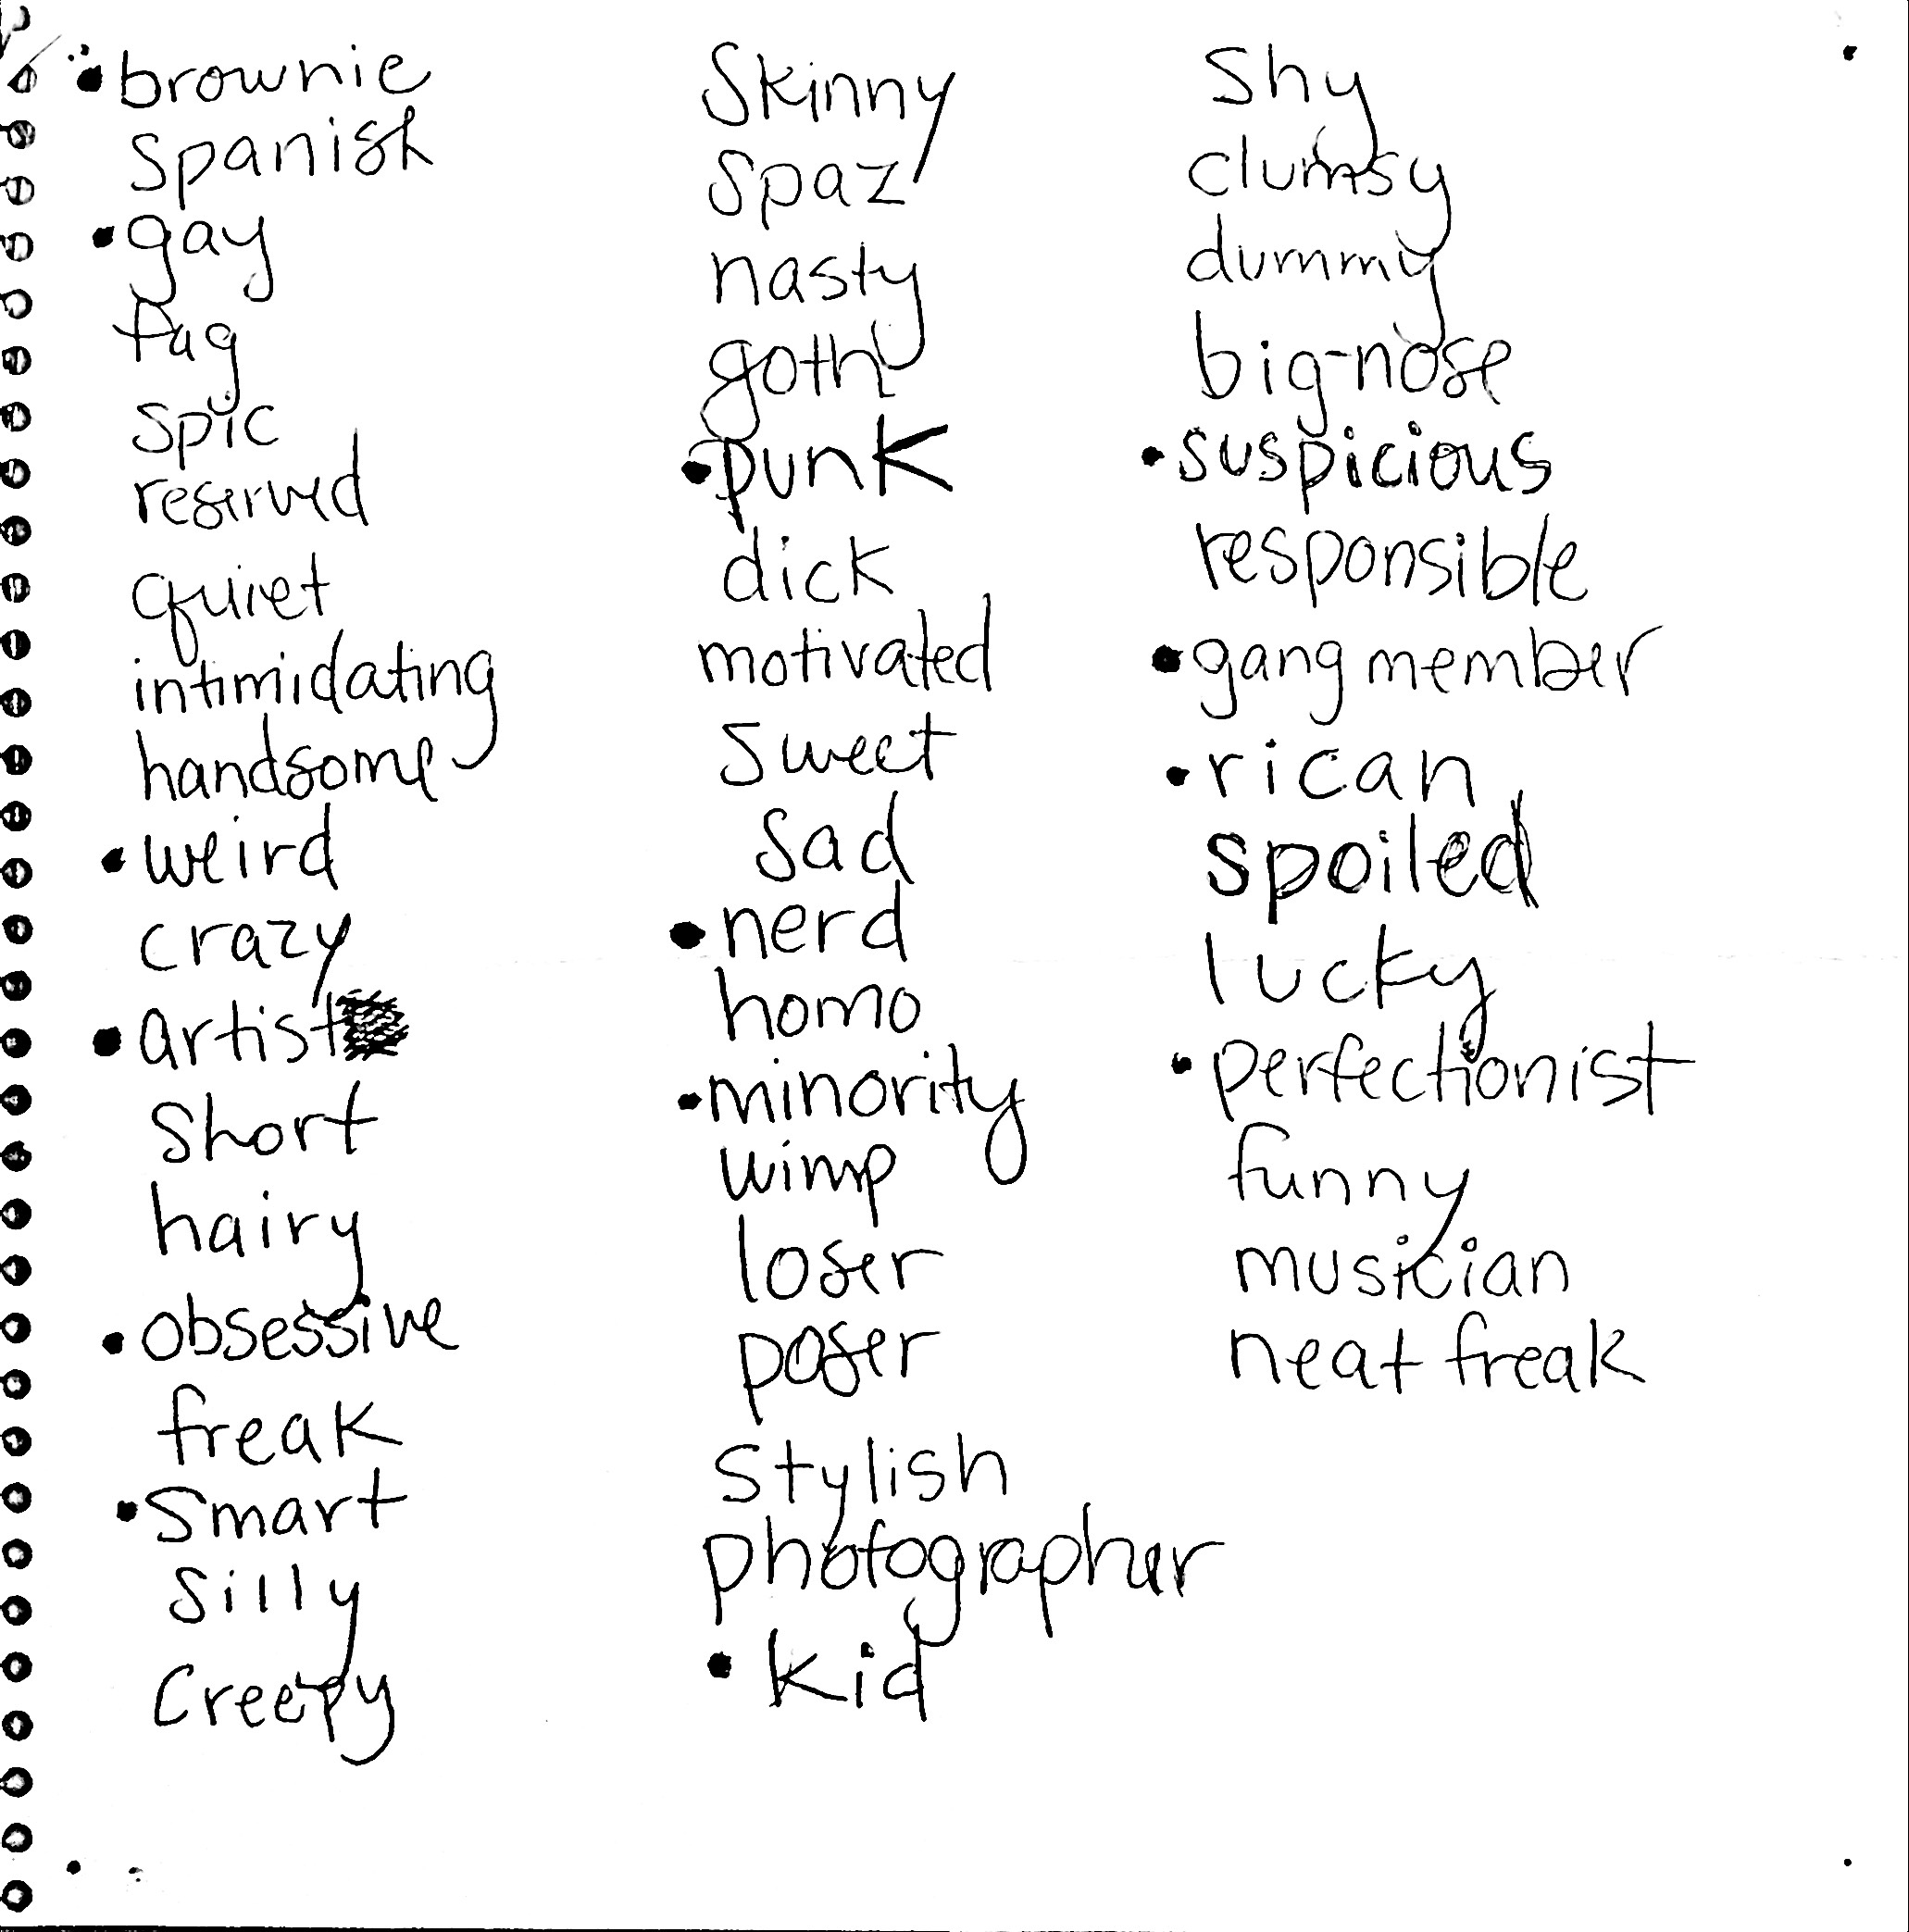 • brownie
Spanish
• gay
fag
spic
reserved
quiet
intimidating
handsome
• weird
crazy
• artist
Short
hairy
• obsessive
freak
• Smart
Silly
Creepy
Skinny
Spaz
nasty
goth
• punk
dick
motivated
Sweet
Sad
• nerd
homo
• minority
wimp
loser
poser
Stylish
photographer
• kid
Shy
clumsy
dummy
big-nose
• suspicious
responsible
• gang member
• rican
spoiled
lucky
• perfectionist
funny
musician
neat freak